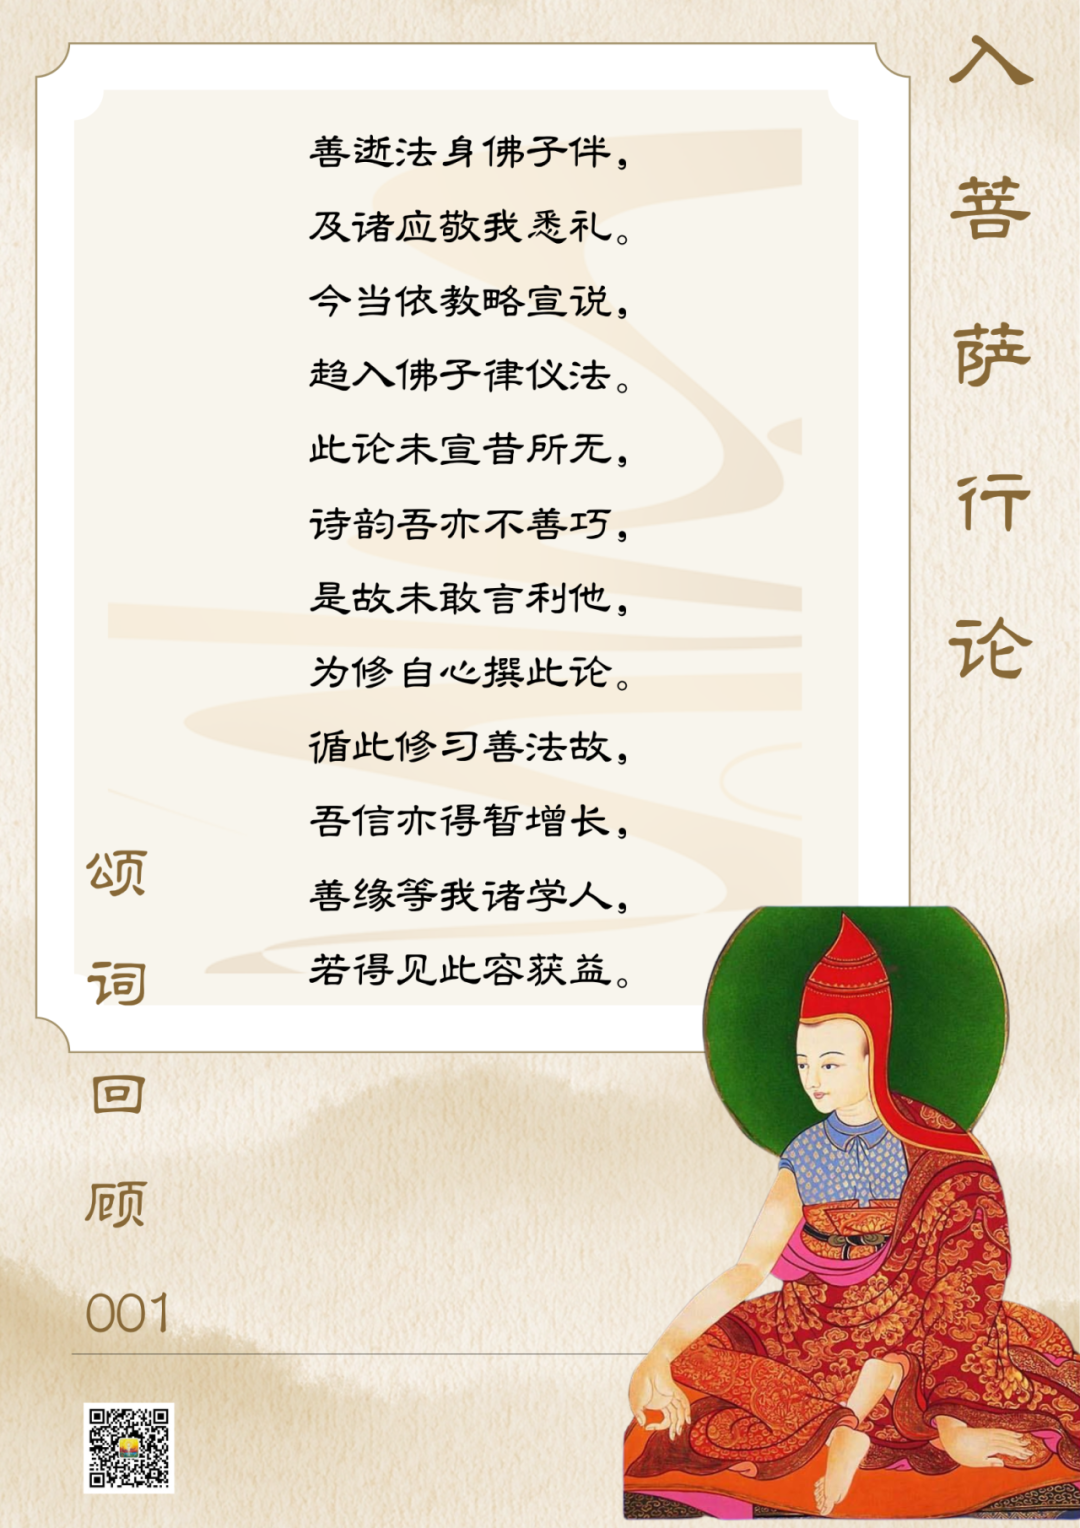 入菩萨行论
善逝法身佛子伴，
及诸应敬我悉礼。
今当依教略宣说，
趋入佛子律仪法。
此论未宣昔所无，
诗韵吾亦不善巧，
是故未敢言利他，
为修自心撰此论。
循此修习善法故，
吾信亦得暂增长，
善缘等我诸学人，
若得见此容获益。
颂词回顾
001